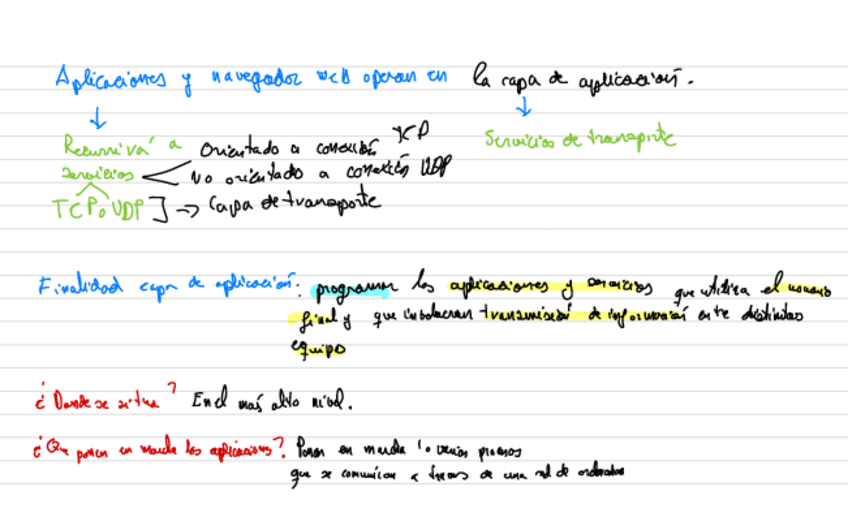 Aplicaciones y navegador web operan en la capa de aplicación.
Recurrirá a orientado a conexión TCP
Servicios de transporte
servicios no orientado a conexión UDP
TCP o UDP ] → Capa de transporte
Finalidad capa de aplicación: programar las aplicaciones y servicios que utiliza el usuario
final y que involucran transmisión de información entre distintos
equipo
¿Donde se situa? En el más alto nivel.
¿Que ponen en marcha las aplicaciones? Ponen en marcha 1 o varios procesos
que se comunican a traves de una red de ordenadores